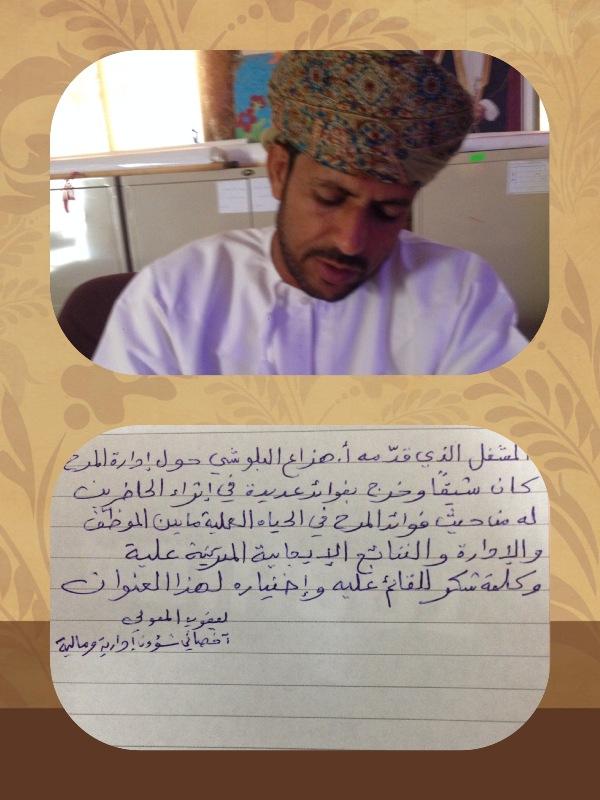 المشغل الذي قدّمه أ. هزاع البلوشي حول إدارة المرح
كان شيقًا وخرج بفوائد عديدة في إثراء الحاضرين
له من حيث فوائد المرح في الحياة العملية مابين الموظف
والإدارة والنتائج الإيجابية المترتبة علية
وكلمة شكر للقائم عليه وإختياره لهذا العنوان
يعقوب المعولي
أخصائي شؤون إدارية ومالية